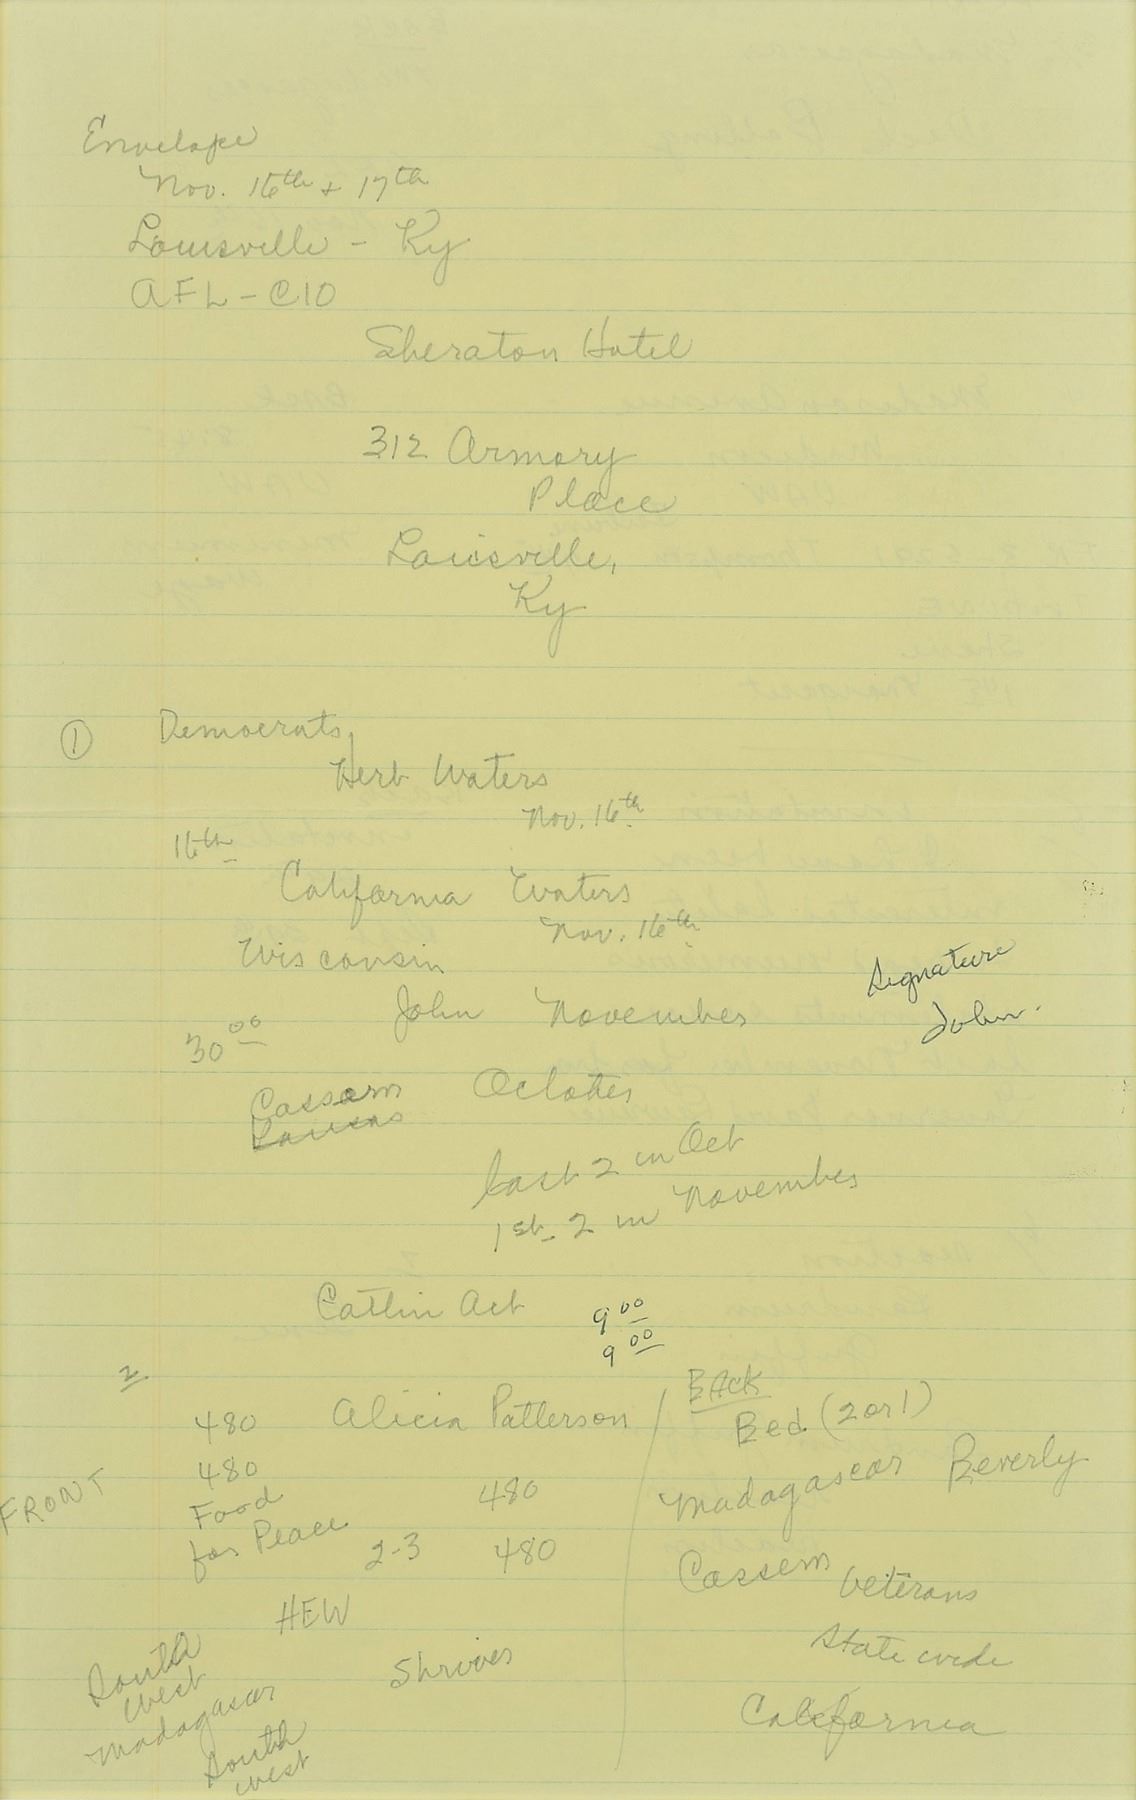 Envelope
Nov. 16th & 17th
Louisville - Ky
AFL-CIO
Sheraton Hotel
312 Armory
Place
Louisville,
Ky
① Democrats,
Herb Waters
Nov. 16th
16th
California Waters
Nov. 16th
Wisconsin
Signature
John.
John November
30 00
Cassem October
Kansas
last 2 in Oct
1st 2 in November
Catlin Act
9 00
9 00
2
480 Alicia Patterson
480
480
Food
for Peace
2-3 480
FRONT
HEW
Shriver
South
west
Madagascar
South
west
BACK
Bed (2 or 1)
Madagascar Beverly
Cassem Veterans
State wide
California